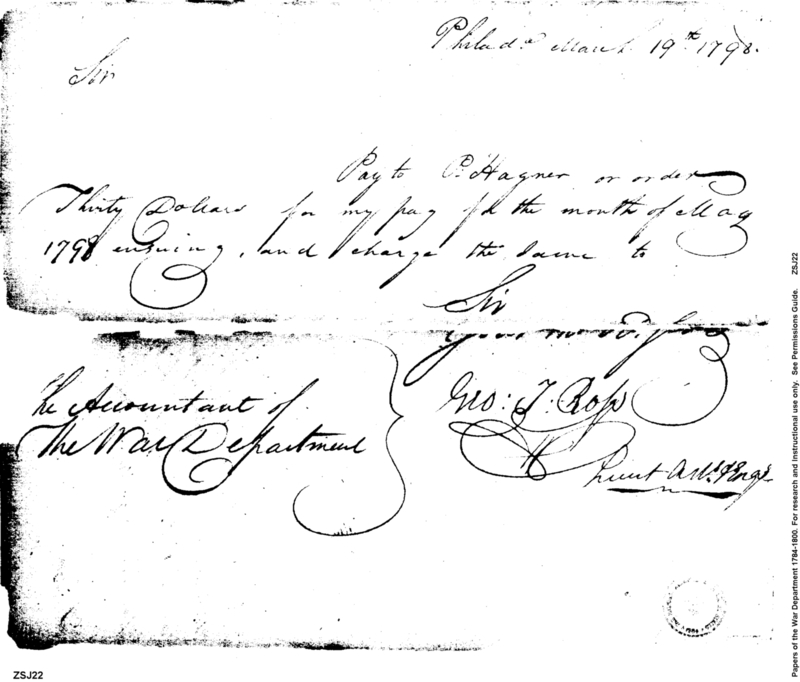 Philada March 19th 1798.
Sir
Pay to P. Hagner or order
Thirty Dollars for my pay for the month of May
1798 ensuing, and charge the same to
Sir
Your
Geo: T. Ross
Lieut
The Accountant of
The War Department
ZSJ22
Papers of the War Department 1784-1800. For research and instructional use only. See Permissions Guide. ZSJ22